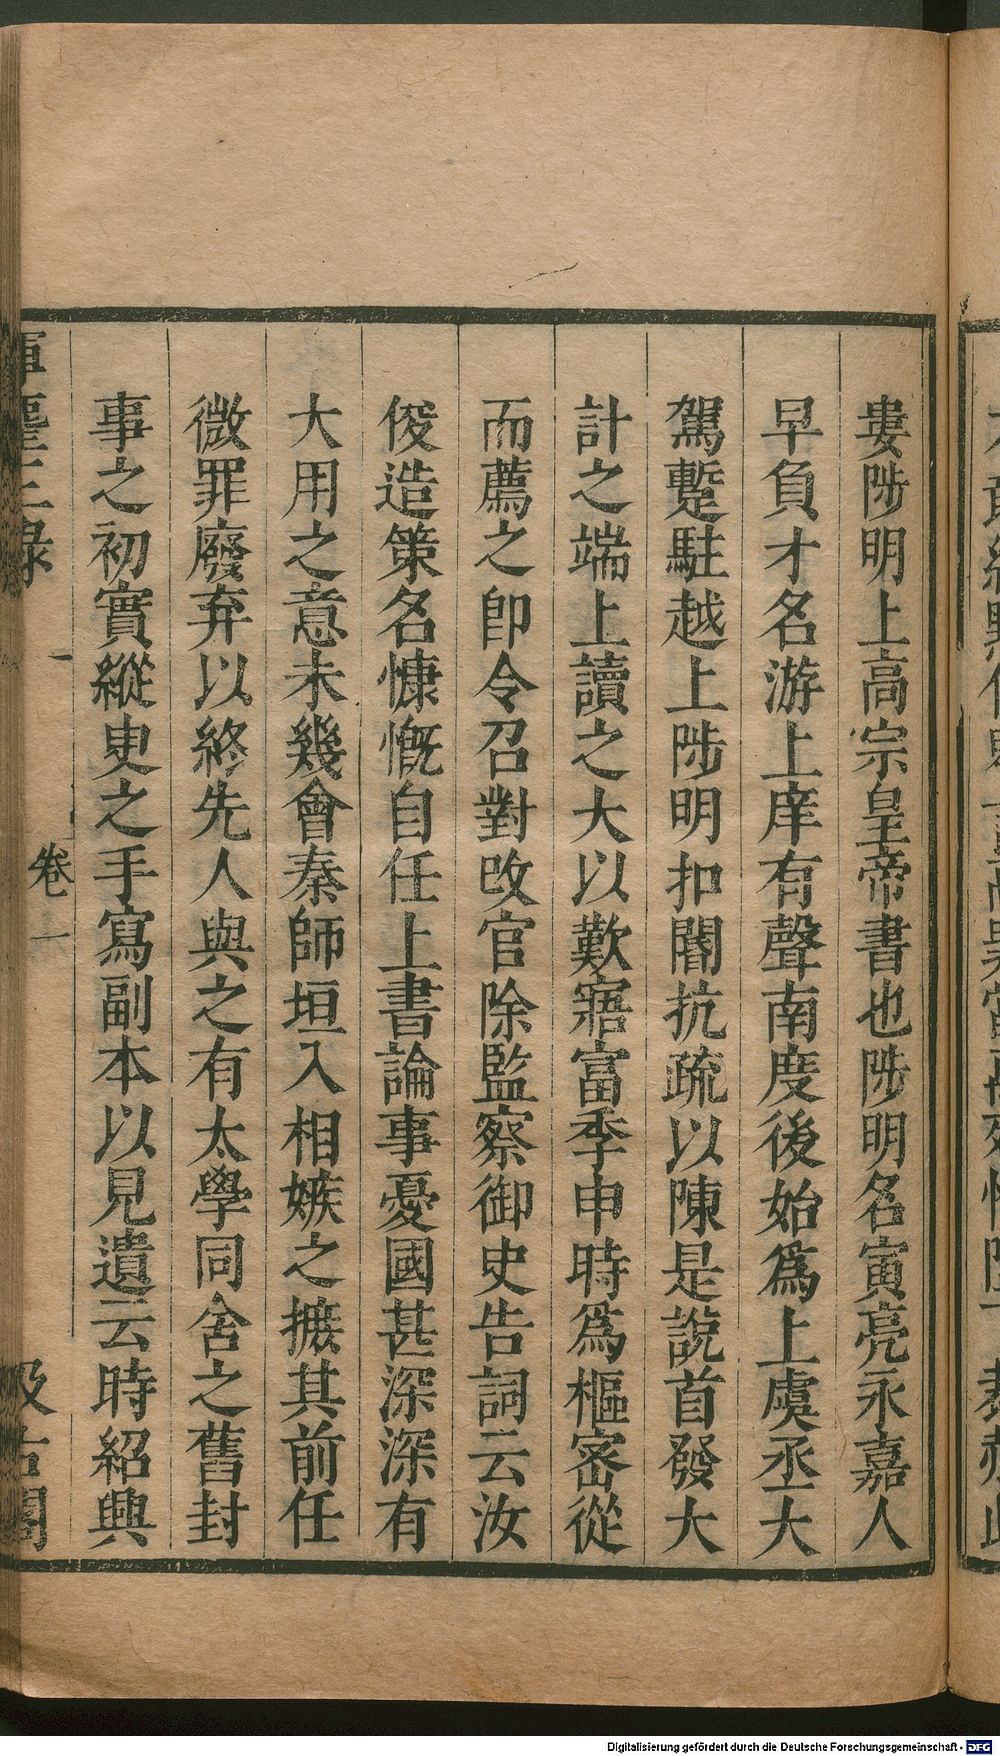 婁陟明上高宗皇帝書也陟明名寅亮永嘉人
早負才名游上庠有聲南度後始爲上虞丞大
駕蹔駐越上陟明扣閽抗疏以陳是說首發大
計之端上讀之大以歎寤富季申時爲樞密從
而薦之卽令召對改官除監察御史告詞云汝
俊造策名慷慨自任上書論事憂國甚深深有
大用之意未幾會秦師垣入相嫉之摭其前任
微罪廢弃以終先人與之有太學同舍之舊封
事之初實縱臾之手寫副本以見遺云時紹興
揮麈三錄
卷一
汲古閣
Digitalisierung gefördert durch die Deutsche Forschungsgemeinschaft - DFG